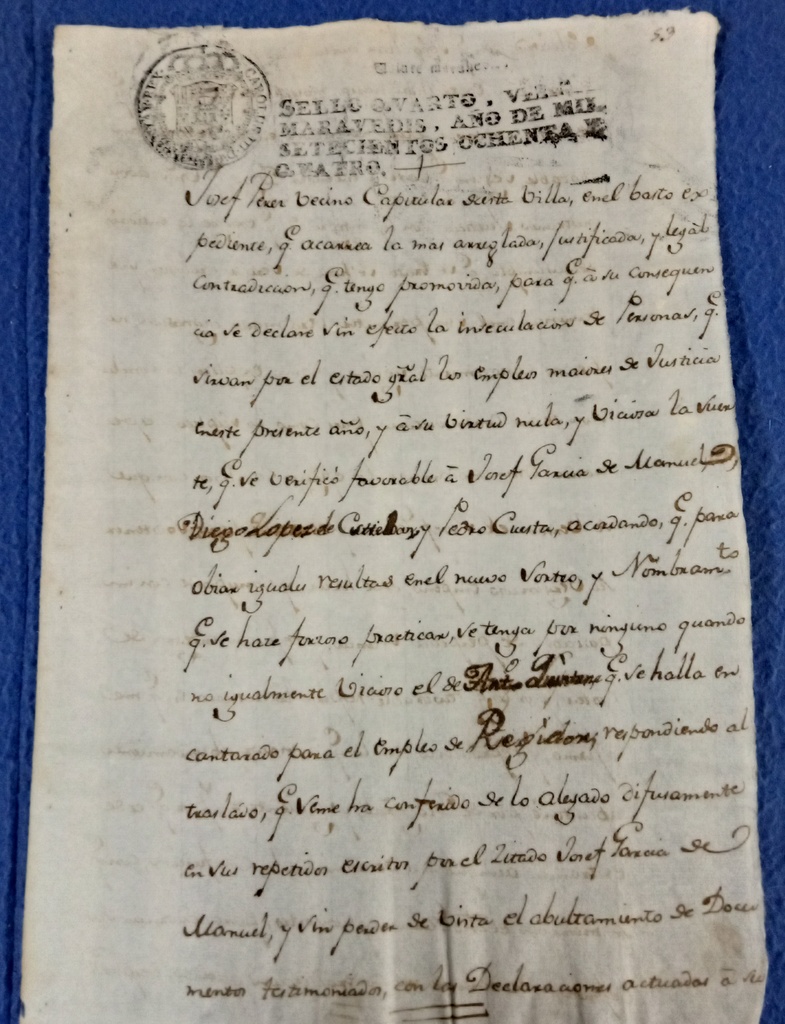 53
SELLO QVARTO, VEINTE
MARAVEDIS, AÑO DE MIL
SETECIENTOS OCHENTA Y
QVATRO.
Josef Perez Vecino Capitular desta Villa, enel basto ex
pediente, q. acarrea la mas arreglada, justificada, y legal
contradicion, q. tengo promovida, para q. â su consequen
cia se declare sin efecto la inseculacion de Personas, q.
sirvan por el estado gral los empleos maiores de Justicia
eneste presente año, y â su virtud nula, y viciosa la suer
te, q. se verificó favorable â Josef Garcia de Manuel,
Diego Lopez de y Pedro Cuesta, acordando, q. para
obiar iguales resultas enel nuevo sorteo, y Nombramto
q. se hace forzoso practicar, se tenga por ninguno quando
no igualmente vicioso el de Anto q. se halla en
cantarado para el empleo de Regidor, respondiendo al
traslado, q. seme ha conferido de lo alegado difusamente
en sus repetidos escritos por el zitado Josef Garcia de
Manuel, y sin perder de vista el abultamiento de Docu
mentos testimoniados, con las Declaraciones actuadas â su